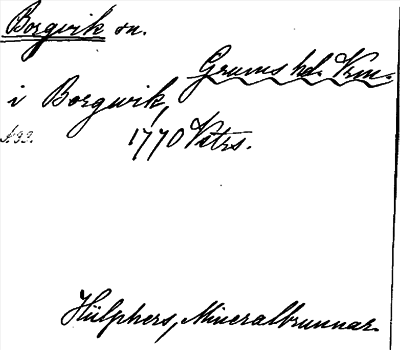 Borgvik sn.
Grums hd. Vrm.
i Borgwik,
1770 Vstrs.
Hülphers, Mineralbrunnar.